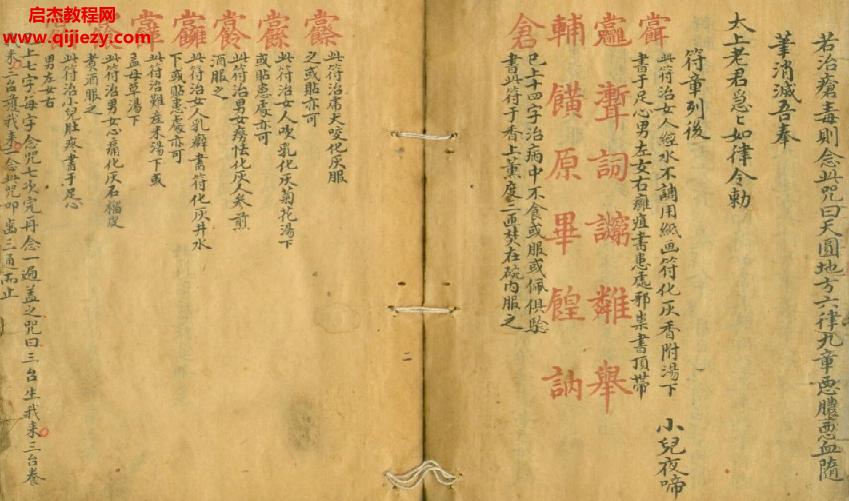 启杰教程网
www.qijiezy.com
若治瘡毒則念此咒曰天圓地方六律九章惡膿惡血隨
筆消滅吾奉
太上老君急〻如律令勅
符章列後
此符治女人經水不調用紙画符化灰香附湯下
書于足心男左女右癰疽書患處邪祟書頂帶
小兒夜啼
輔饙原畢餭訥
已上十四字治病中不食或服或佩俱驗
書此符于香上薰度三匝焚在碗内服之
二
此符治瘋犬咬化灰服
之或貼亦可
此符治女人吹乳化灰菊花湯下
或貼患處亦可
此符治男女癆怯化灰人参煎
酒服之
此符治女人乳癖書符化灰井水
下或貼患處亦可
此符治難産米湯下或
益母草湯下
此符治男女心痛化灰石榴皮
煮酒服之
此符治小兒肚疼書于足心
男左女右
上七字每字念咒七次完再念一過盖之咒曰三台生我來三台養
我来三台護我来一念此咒叩齒三通而止